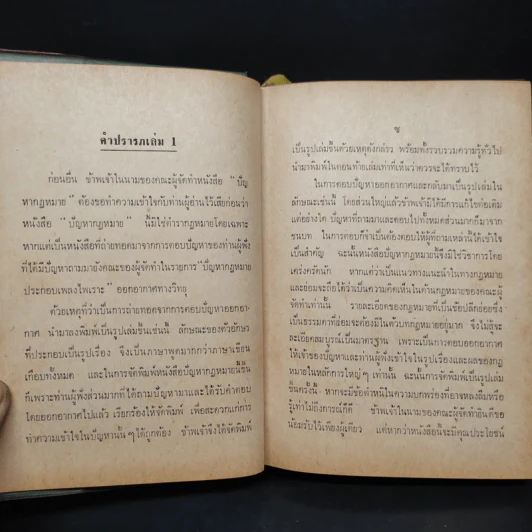 คำปรารภเล่ม 1
ก่อนอื่น ข้าพเจ้าในนามของคณะผู้จัดทำหนังสือ "ปัญ
หากฎหมาย" ต้องขอทำความเข้าใจกับท่านผู้อ่านไว้เสียก่อนว่า
หนังสือ "ปัญหากฎหมาย" นี้มิใช่ตำรากฎหมายโดยเฉพาะ
หากแต่เป็นหนังสือที่ถ่ายทอดมาจากการตอบปัญหาของท่านผู้ฟัง
ที่ได้มีปัญหาถามมายังคณะของผู้จัดทำในรายการ "ปัญหากฎหมาย
ประกอบเพลงไพเราะ" ออกอากาศทางวิทยุ
ด้วยเหตุที่ว่าเป็นการถ่ายทอดจากการตอบปัญหาออกอา-
กาศ นำมาลงพิมพ์เป็นรูปเล่มขึ้นเช่นนี้ ลักษณะของตัวอักษร
ที่ประกอบเป็นรูปเรื่อง จึงเป็นภาษาพูดมากกว่าภาษาเขียน
เกือบทั้งหมด และในการจัดพิมพ์หนังสือปัญหากฎหมายนี้ขึ้น
ก็เพราะท่านผู้ฟังส่วนมากที่ได้ถามปัญหามาและได้รับคำตอบ
โดยออกอากาศไปแล้ว เรียกร้องให้จัดพิมพ์ เพื่อสะดวกแก่การ
ทำความเข้าใจในปัญหานั้น ๆ ได้ถูกต้อง ข้าพเจ้าจึงได้จัดพิมพ์
ข
เป็นรูปเล่มขึ้นด้วยเหตุดังกล่าว พร้อมทั้งรวบรวมความรู้ทั่วไป
นำมาพิมพ์ในตอนท้ายเล่มเท่าที่เห็นว่าควรจะได้ทราบไว้
ในการตอบปัญหาออกอากาศและกลับมาเป็นรูปเล่มใน
ลักษณะเช่นนี้ โดยส่วนใหญ่แล้วข้าพเจ้ามิได้มีการแก้ไขต่อเติม
แต่อย่างใด ปัญหาที่ถามมาและตอบไปทั้งหมดส่วนมากก็มาจาก
ชนบท ในการตอบก็จำเป็นต้องตอบให้ผู้ที่ถามเหล่านี้ได้เข้าใจ
เป็นสำคัญ ฉะนั้นหนังสือปัญหากฎหมายนี้จึงมิใช่วิชาการโดย
เคร่งครัดนัก หากแต่ว่าเป็นแนวทางแนะนำในทางกฎหมาย
และย่อมจะถือได้ว่าเป็นความคิดเห็นในด้านกฎหมายของคณะผู้
จัดทำเท่านั้น รายละเอียดของกฎหมายที่เป็นข้อปลีกย่อยซึ่ง
เป็นธรรมดาที่ย่อมจะต้องมีในตัวบทกฎหมายอยู่มาก จึงไม่สู้จะ
ละเอียดสมบูรณ์เป็นมาตรฐาน เพราะเป็นการตอบออกอากาศ
ให้เจ้าของปัญหาและท่านผู้ฟังเข้าใจในรูปเรื่องและผลของกฎ
หมายในหลักการใหญ่ ๆ เท่านั้น ฉะนั้นการจัดพิมพ์เป็นรูปเล่ม
ขึ้นครั้งนี้ หากจะมีข้อตำหนิในความบกพร่องที่อาจหลงลืมหรือ
รู้เท่าไม่ถึงการณ์ก็ดี ข้าพเจ้าในนามของคณะผู้จัดทำยินดีขอ
น้อมรับไว้เพียงผู้เดียว แต่หากว่าหนังสือนี้จะมีคุณประโยชน์